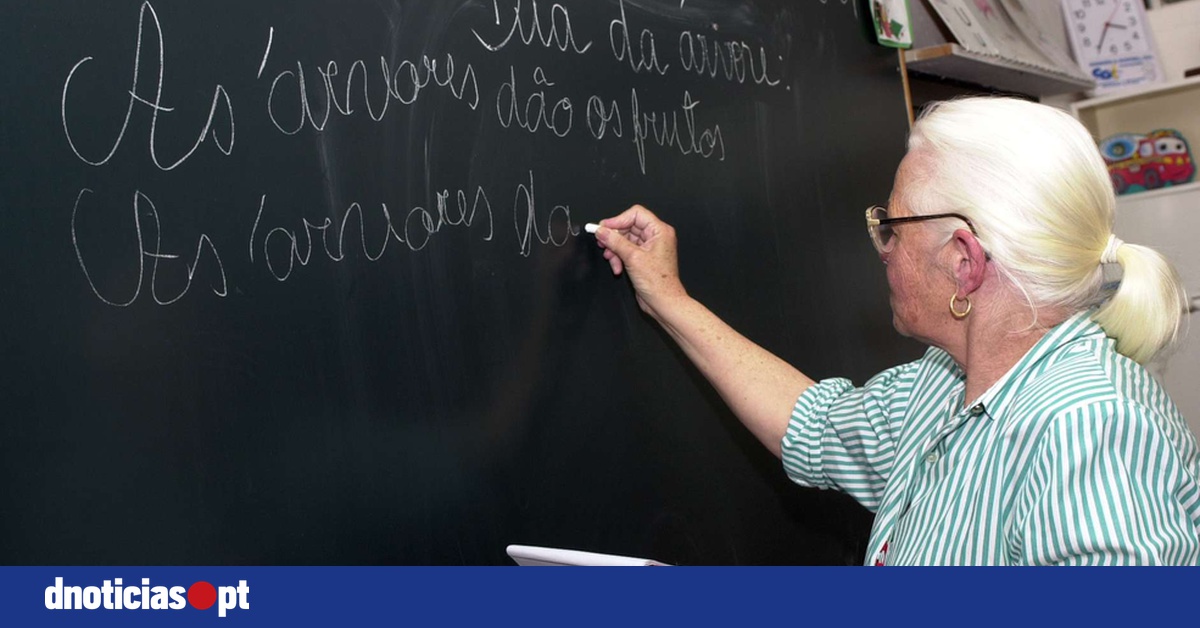 Dia da árvore:
As árvores dão os frutos
As árvores da
dnoticias.pt